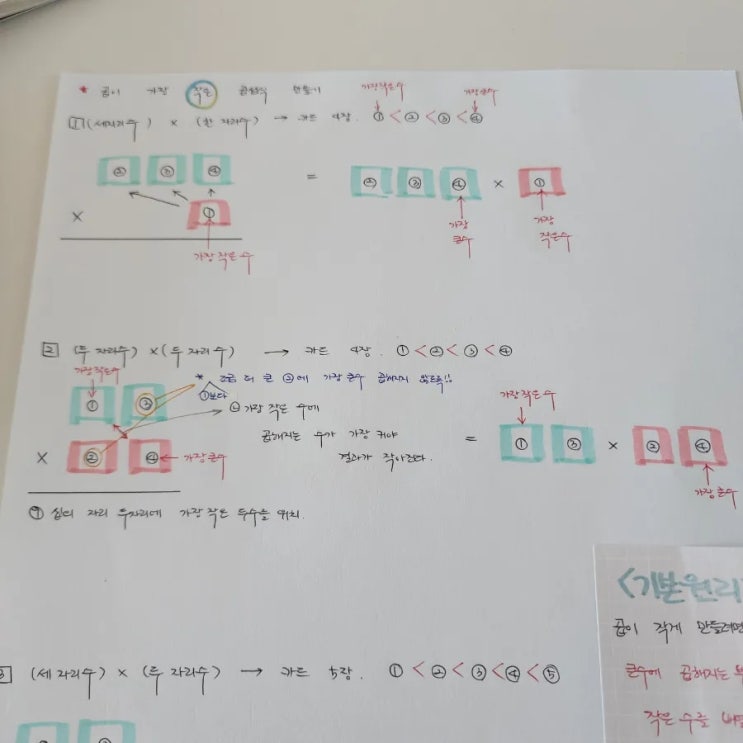 * 곱이 가장 작은 곱셈식 만들기
가장작은수 가장큰수
1 (세자리수) × (한 자리수) → 카드 4장. ① < ② < ③ < ④
② ③ ④ = ② ③ ④ × ①
× ①
가장 큰수 가장 작은수
가장 작은 수
2 (두 자리수) × (두 자리수) → 카드 4장. ① < ② < ③ < ④
가장작은수
* 조금 더 큰 ②에 가장 큰수 곱해지지 않도록!!
①보다
① ③
② 가장 작은 수에
곱해지는 수가 가장 커야
결과가 작아진다.
× ② ④ 가장큰수
가장작은수
= ① ③ × ② ④
가장큰수
① 십의 자리 두자리에 가장 작은 두수를 위치.
3 (세 자리수) × (두 자리수) → 카드 5장. ① < ② < ③ < ④ < ⑤
<기본원리
곱이 작게 만들려면
큰수에 곱해지는
작은 수를